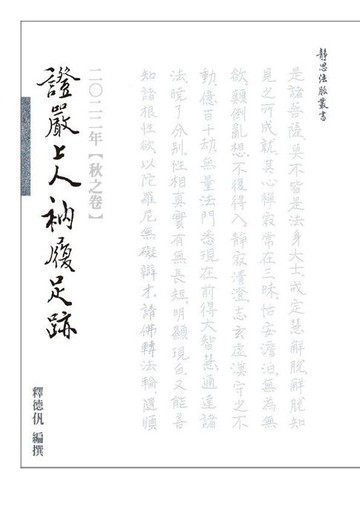 靜思法脈叢書
是諸菩薩莫不皆是法身大士戒定慧解脫解脫知
見之所成就其心禪寂常在三昧恬安澹泊無為無
欲顛倒亂想不復得入靜寂清澄志玄虛漠守之不
動億百千劫無量法門悉現在前得大智慧通達諸
法曉了分別性相真實有無長短明顯現白又能善
知諸根性欲以陀羅尼無礙辯才請佛轉法輪隨順
二〇二二年【秋之卷】
證嚴上人衲履足跡
釋德𠆩 編撰